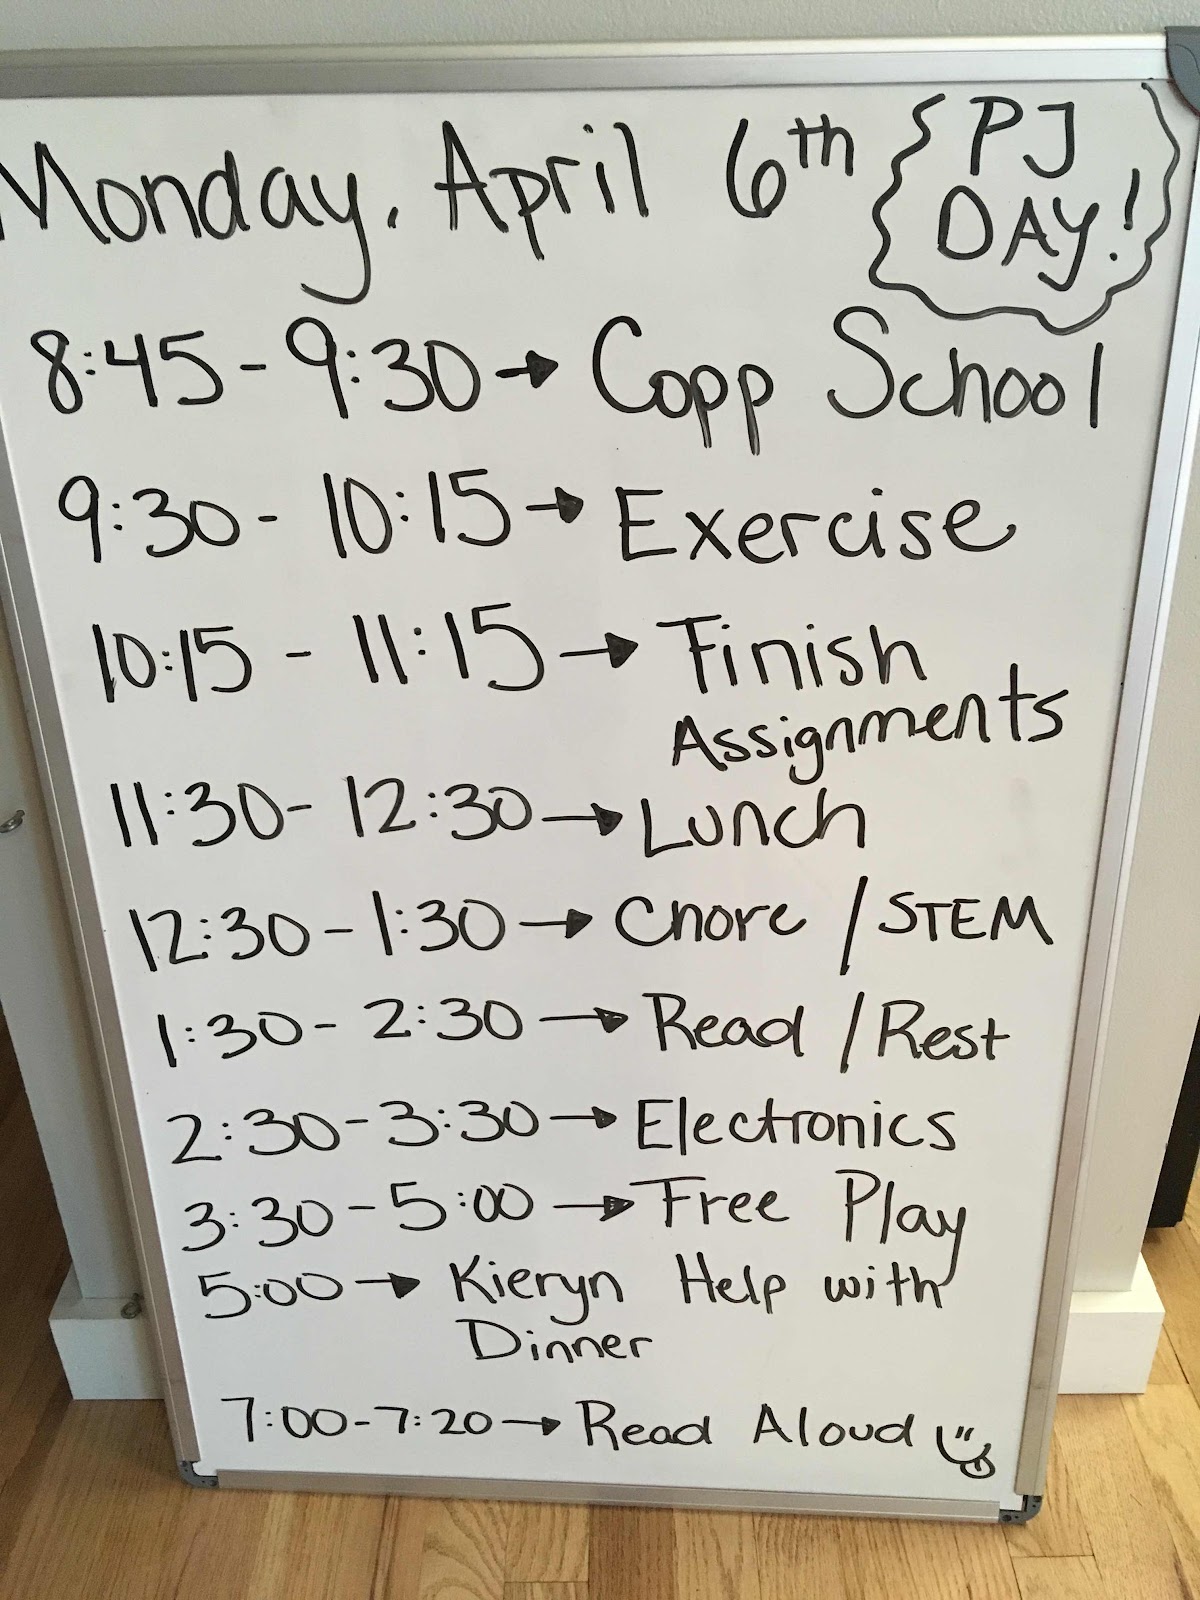 Monday, April 6th
PJ
DAY!
8:45 - 9:30 → Copp School
9:30 - 10:15 → Exercise
10:15 - 11:15 → Finish
Assignments
11:30 - 12:30 → Lunch
12:30 - 1:30 → Chore / STEM
1:30 - 2:30 → Read / Rest
2:30 - 3:30 → Electronics
3:30 - 5:00 → Free Play
5:00 → Kieryn Help with
Dinner
7:00 - 7:20 → Read Aloud